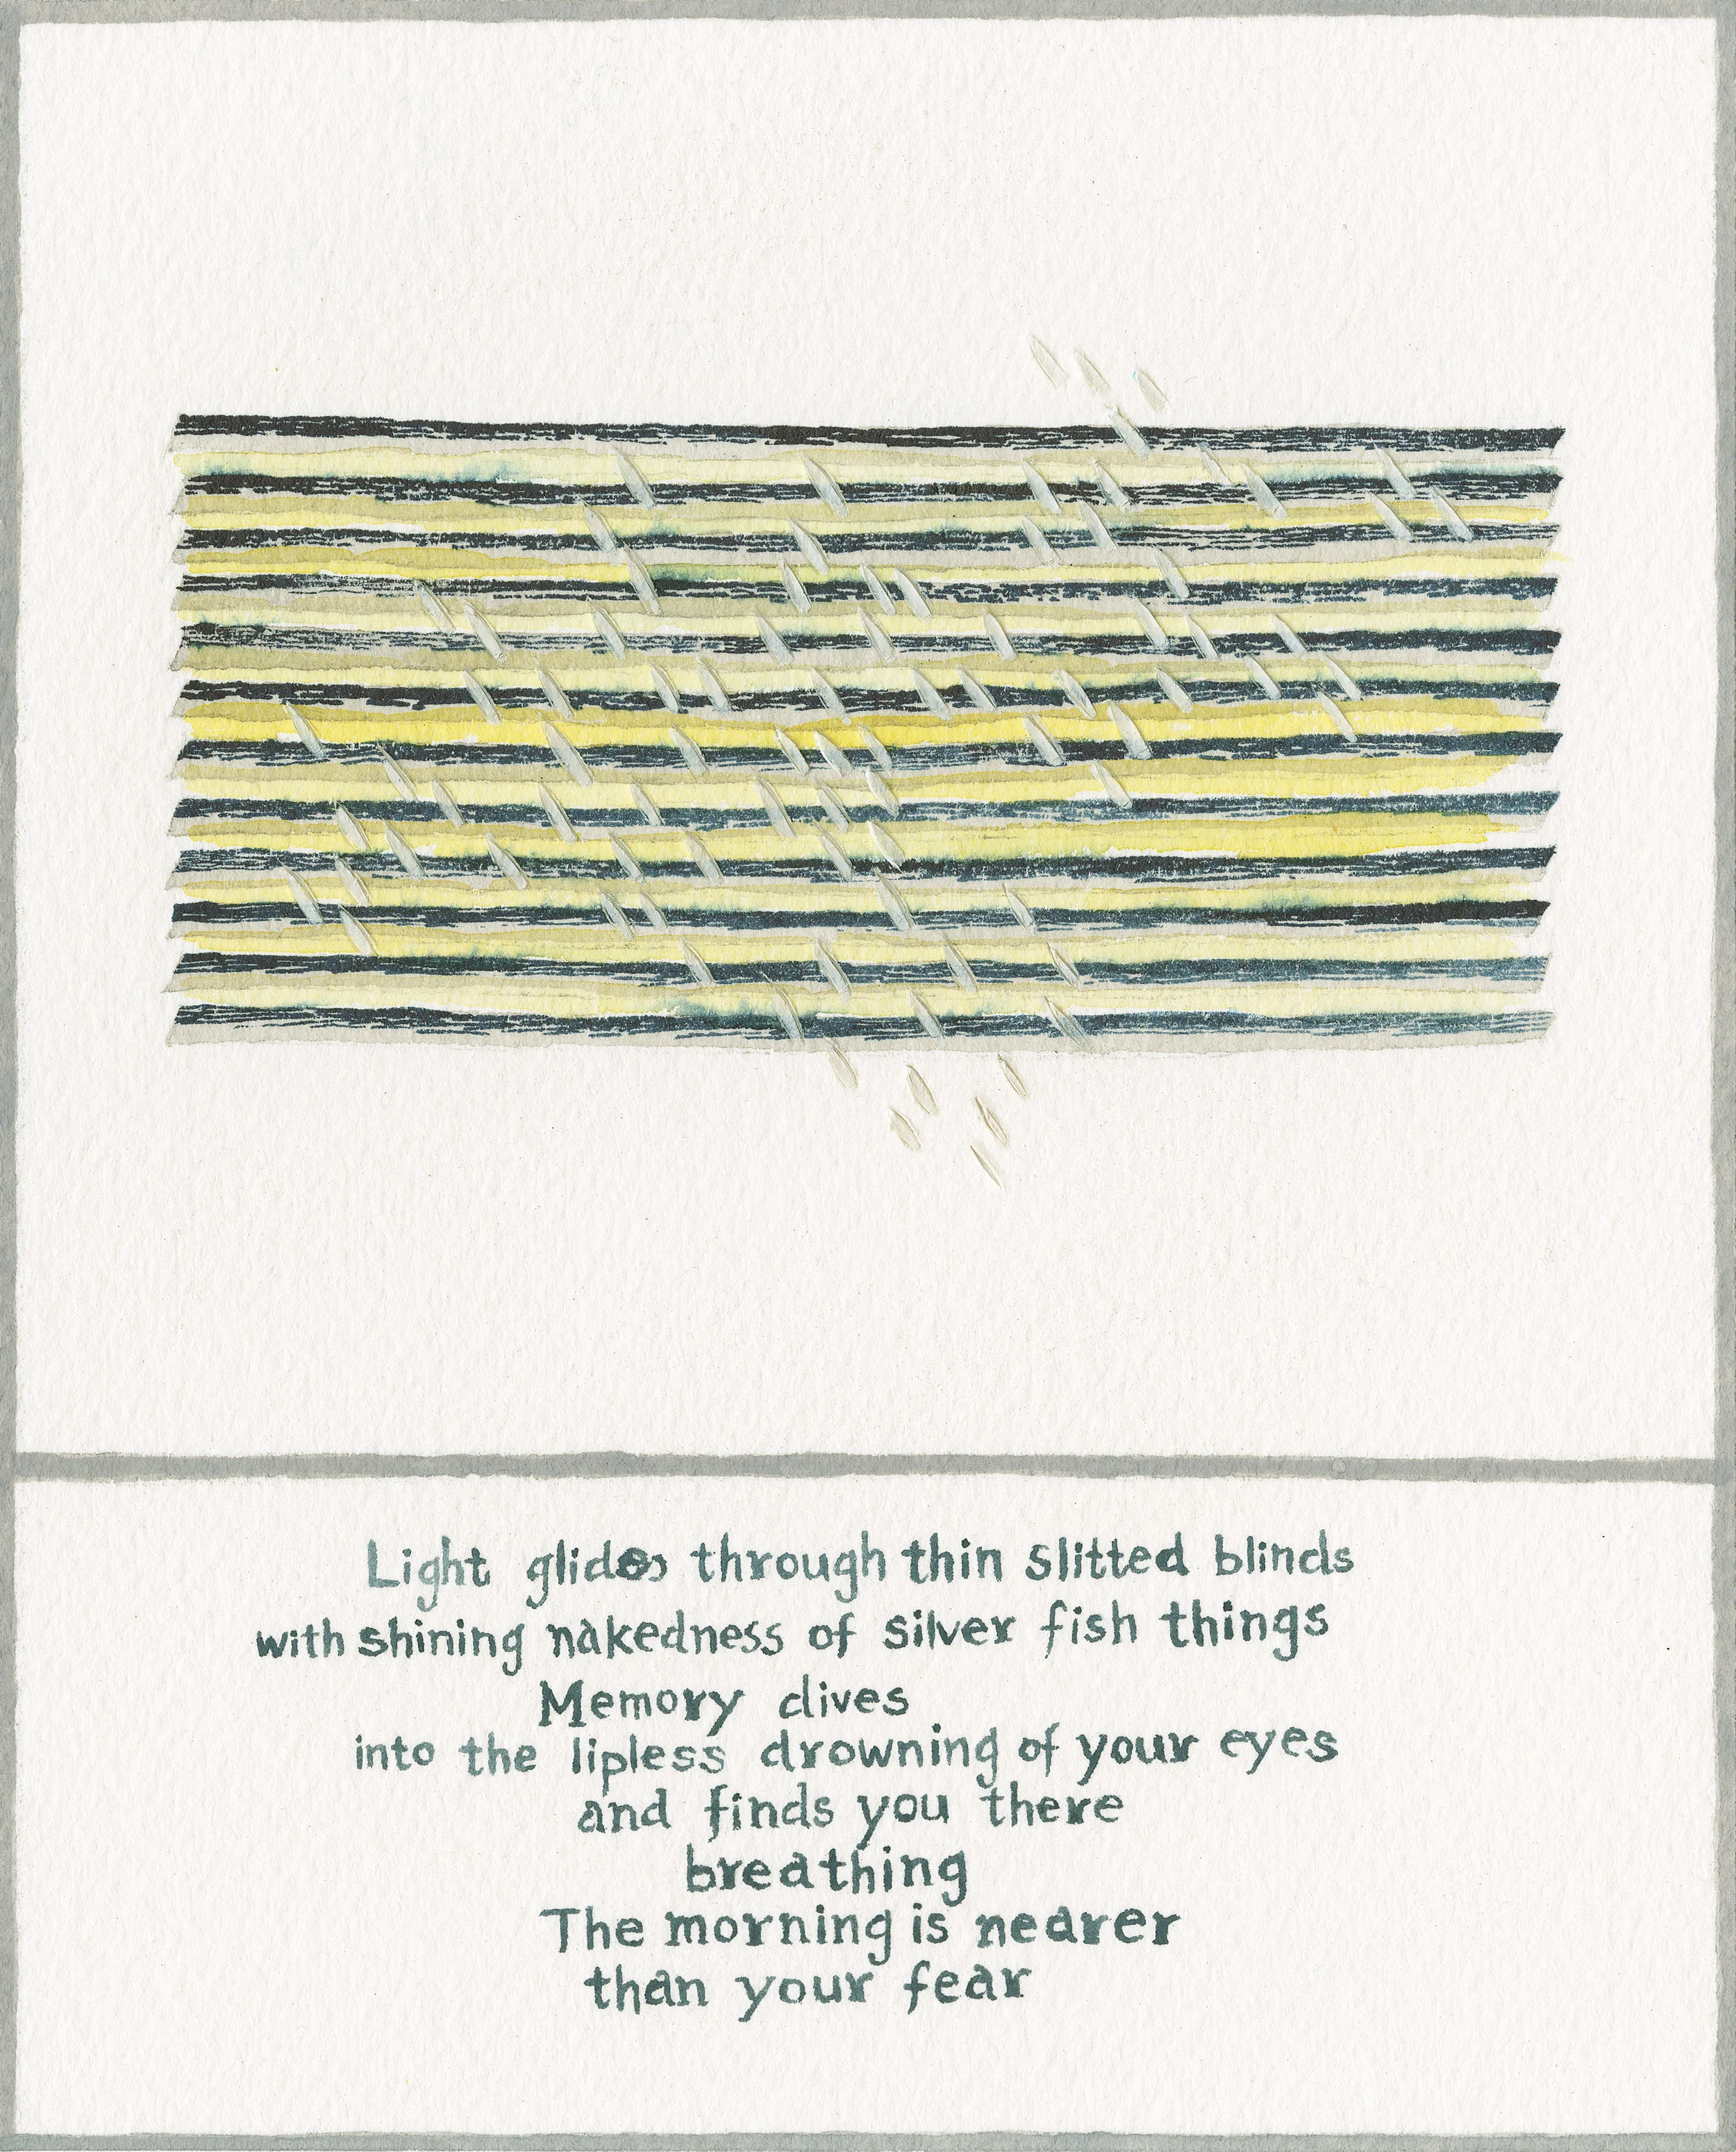 Light glides through thin slitted blinds
with shining nakedness of silver fish things
Memory dives
into the lipless drowning of your eyes
and finds you there
breathing
The morning is nearer
than your fear